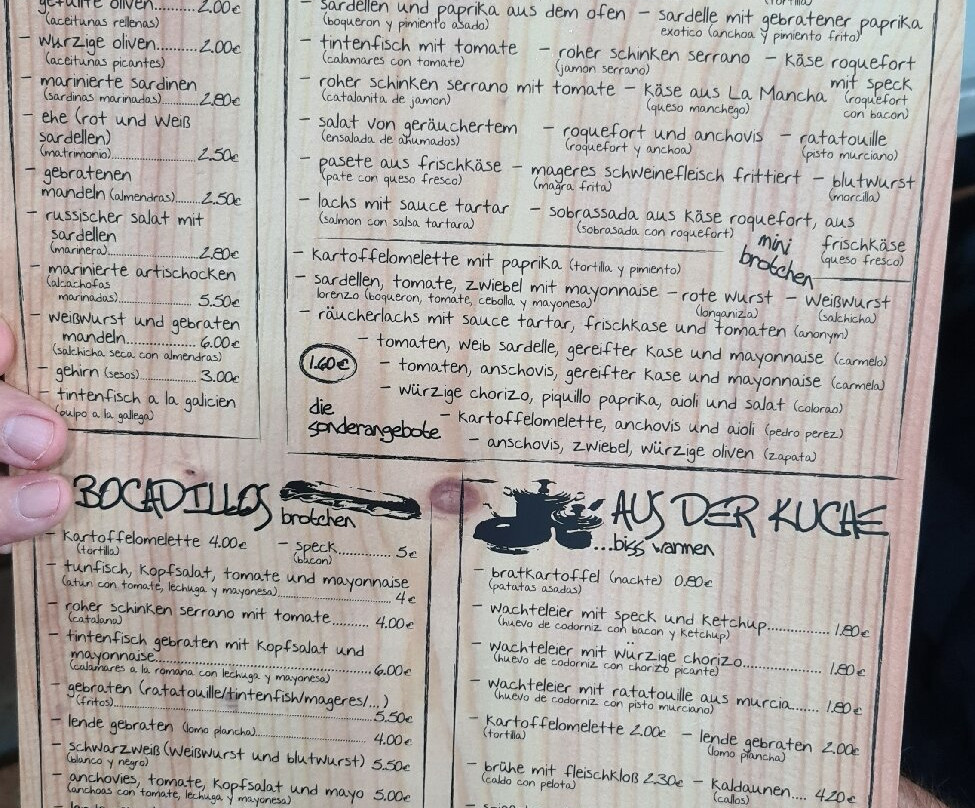 gefüllte oliven.....2.00€
(aceitunas rellenas)
- würzige oliven..........2.00€
(aceitunas picantes)
- marinierte sardinen
(sardinas marinadas)......2.80€
- ehe (rot und weiß
sardellen)
(matrimonio)......2.50€
- gebratenen
mandeln (almendras)......2.50€
- russischer salat mit
sardellen
(marinera)......2.80€
- marinierte artischocken
(alcachofas
marinadas)......5.50€
- weißwurst und gebraten
mandeln......6.00€
(salchicha seca con almendras)
- gehirn (sesos)......3.00€
- tintenfisch a la galicien
(pulpo a la gallega)
- sardellen und paprika aus dem ofen - sardelle mit gebratener paprika
(boqueron y pimiento asado) exotico (anchoa y pimiento frito)
- tintenfisch mit tomate - roher schinken serrano - käse roquefort
(calamares con tomate) (jamon serrano) mit speck
- roher schinken serrano mit tomate - käse aus La Mancha (roquefort
(catalanita de jamon) (queso manchego) con bacon)
- salat von geräuchertem - roquefort und anchovis - ratatouille
(ensalada de ahumados) (roquefort y anchoa) (pisto murciano)
- pasete aus frischkäse - mageres schweinefleisch frittiert - blutwurst
(pate con queso fresco) (magra frita) (morcilla)
- lachs mit sauce tartar - sobrassada aus käse roquefort, aus
(salmon con salsa tartara) (sobrasada con roquefort) frischkäse
(queso fresco)
mini
brotchen
- kartoffelomelette mit paprika (tortilla y pimiento)
- sardellen, tomate, zwiebel mit mayonnaise - rote wurst - weißwurst
lorenzo (boqueron, tomate, cebolla y mayonesa) (longaniza) (salchicha)
- räucherlachs mit sauce tartar, frischkase und tomaten (anonym)
- tomaten, weib sardelle, gereifter kase und mayonnaise (carmelo)
1.60€ - tomaten, anschovis, gereifter kase und mayonnaise (carmela)
- würzige chorizo, piquillo paprika, aioli und salat (colorao)
die
sonderangebote
- kartoffelomelette, anchovis und aioli (pedro perez)
- anschovis, zwiebel, würzige oliven (zapata)
BOCADILLOS
brotchen
- kartoffelomelette 4.00€ - speck............ 5€
(tortilla) (bacon)
- tunfisch, kopfsalat, tomate und mayonnaise
(atun con tomate, lechuga y mayonesa)......4€
- roher schinken serrano mit tomate......... 4.00€
(catalana)
- tintenfisch gebraten mit kopfsalat und
mayonnaise......6.00€
(calamares a la romana con lechuga y mayonesa)
- gebraten (ratatouille/tintenfish/mageres/...)
(fritos)......5.50€
- lende gebraten (lomo plancha)......4.00€
- schwarzweiß (weißwurst und blutwurst) 5.50€
(blanco y negro)
- anchovies, tomate, kopfsalat und mayo 5.00€
(anchoas con tomate, lechuga y mayonesa)
AUS DER KUCHE
...biss wannen
- bratkartoffel (nachte) 0.80€
(patatas asadas)
- wachteleier mit speck und ketchup............... 1.80€
(huevo de codorniz con bacon y ketchup)
- wachteleier mit wurzige chorizo......... 1.80€
(huevo de codorniz con chorizo picante)
- wachteleier mit ratatouille aus murcia...... 1.80€
(huevo de codorniz con pisto murciano)
- kartoffelomelette 2.00€ - lende gebraten 2.00€
(tortilla) (lomo plancha)
- brühe mit fleischkloß 2.30€ - kaldaunen.... 4.20€
(caldo con pelota) (callos)